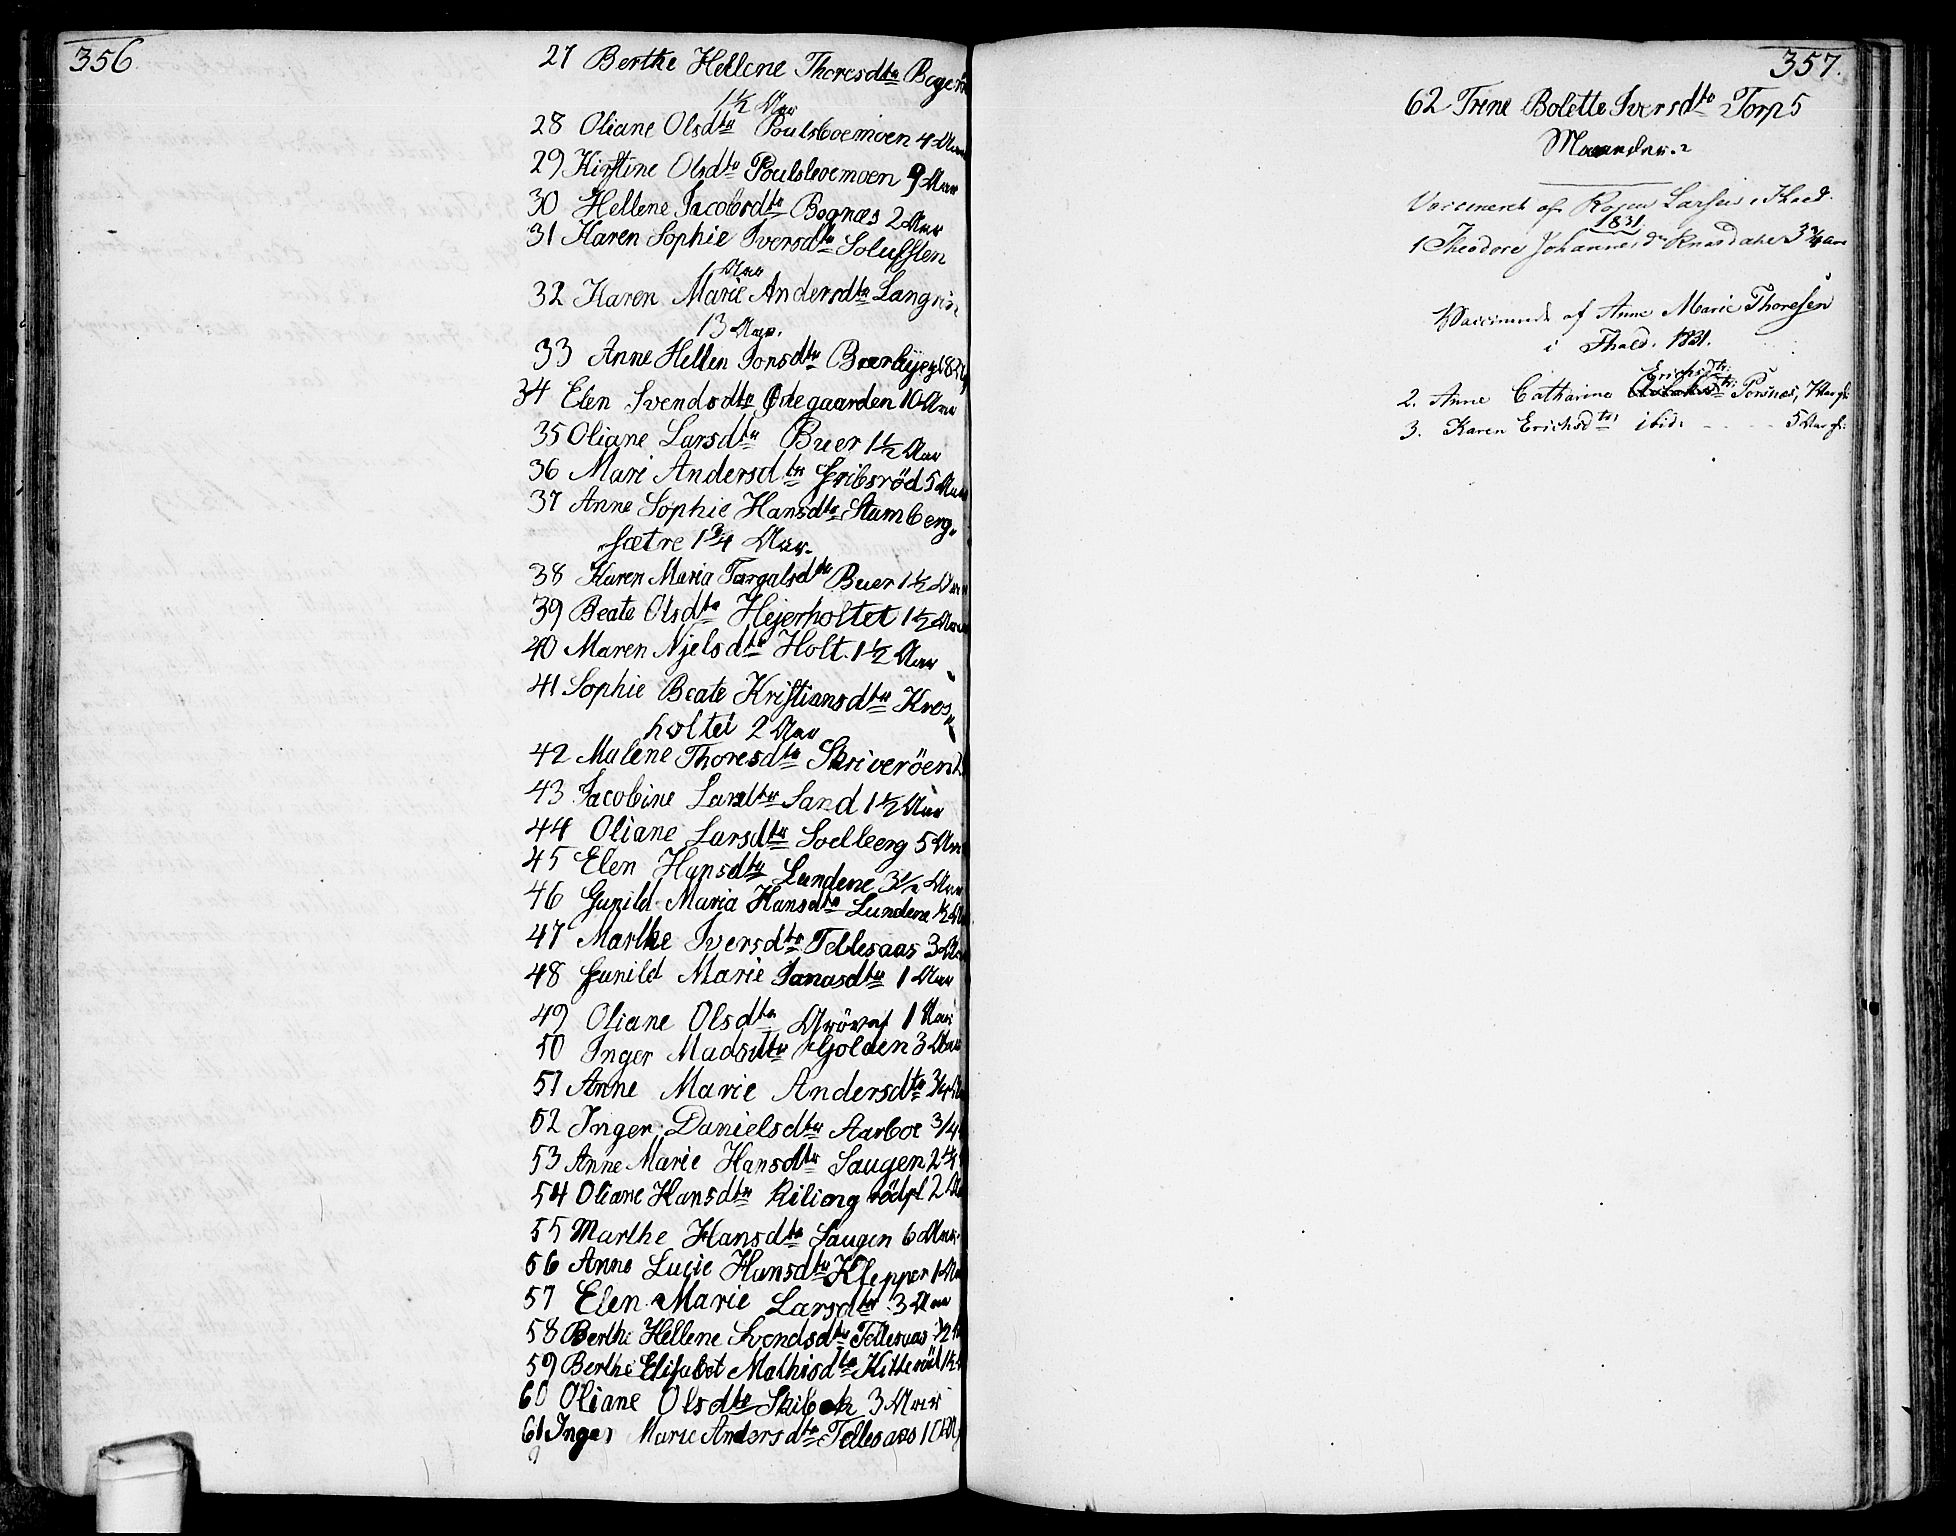 356
27 Berthe Hellene Thoresdtr
1½ Aar
28 Oliane Olsdtr Poulsboemoen 4 Aar
29 Kirstine Olsdtr Poulsboemoen 9 Aar
30 Hellene Jacobsdtr Bognæs 2 Aar
31 Karen Sophie Iversdtr
1 Aar
32 Karen Marie Andersdtr
13 Aar.
33 Anne Hellen Jonsdtr
34 Elen Svendsdtr Ödegaarden 10 Aar
35 Oliane Larsdtr Buer 1½ Aar
36 Mari Andersdtr Gribsröd 5 Aar
37 Anne Sophie Hansdtr Stumberg-
sætre 1¾ Aar.
38 Karen Maria Torgalsdtr Buer 1½ Aar
39 Beate Olsdtr Hejerholtet 1½ Aar
40 Maren Njelsdtr Holt. 1½ Aar
41 Sophie Beate Kristiansdtr Kres
holtet 2 Aar
42 Malene Thoresdtr Skriveröen
43 Jacobine Larsdtr Sand 1½ Aar
44 Oliane Larsdtr Soelberg 5 Aar
45 Elen Hansdtr Lundene 3½ Aar
46 Gunild Maria Hansdtr Lundene ½ Aar
47 Marthe Iversdtr Tellesaas 3 Aar
48 Gunild Marie Jonasdtr 1 Aar
49 Oliane Olsdtr 1 Aar
50 Inger Madsdtr 3 Aar
51 Anne Marie Andersdtr ¾ Aar
52 Inger Danielsdtr Aarboe 3/4
53 Anne Marie Hansdtr Saugen 2
54 Oliane Hansdtr 2
55 Marthe Hansdtr Saugen 6 Aar.
56 Anne Lucie Hansdtr Klepper 1 Aar
57 Elen Marie Larsdtr 3 Aar
58 Berthe Hellene Svendsdtr Tellesaas ½
59 Berthe Elisabet Mathisdtr Kitteröd
60 Oliane Olsdtr Skibok 3 Aar
61 Inger Marie Andersdtr Tellesaas
357.
62 Trine Bolette Iversdtr Torp 5
Maaneder.
Vaccineret af Larsen i Fhald.
1831
1 Theodore Johannesdtr 3¾ Aar
Vaccinerede af Anne Marie Thoresen
i Fhald. 1831.
Erichsdtr.
2. Anne Catharine 7 Aar gl.
3. Karen Erichsdtr. ibid. - - - - 5 Aar gl.